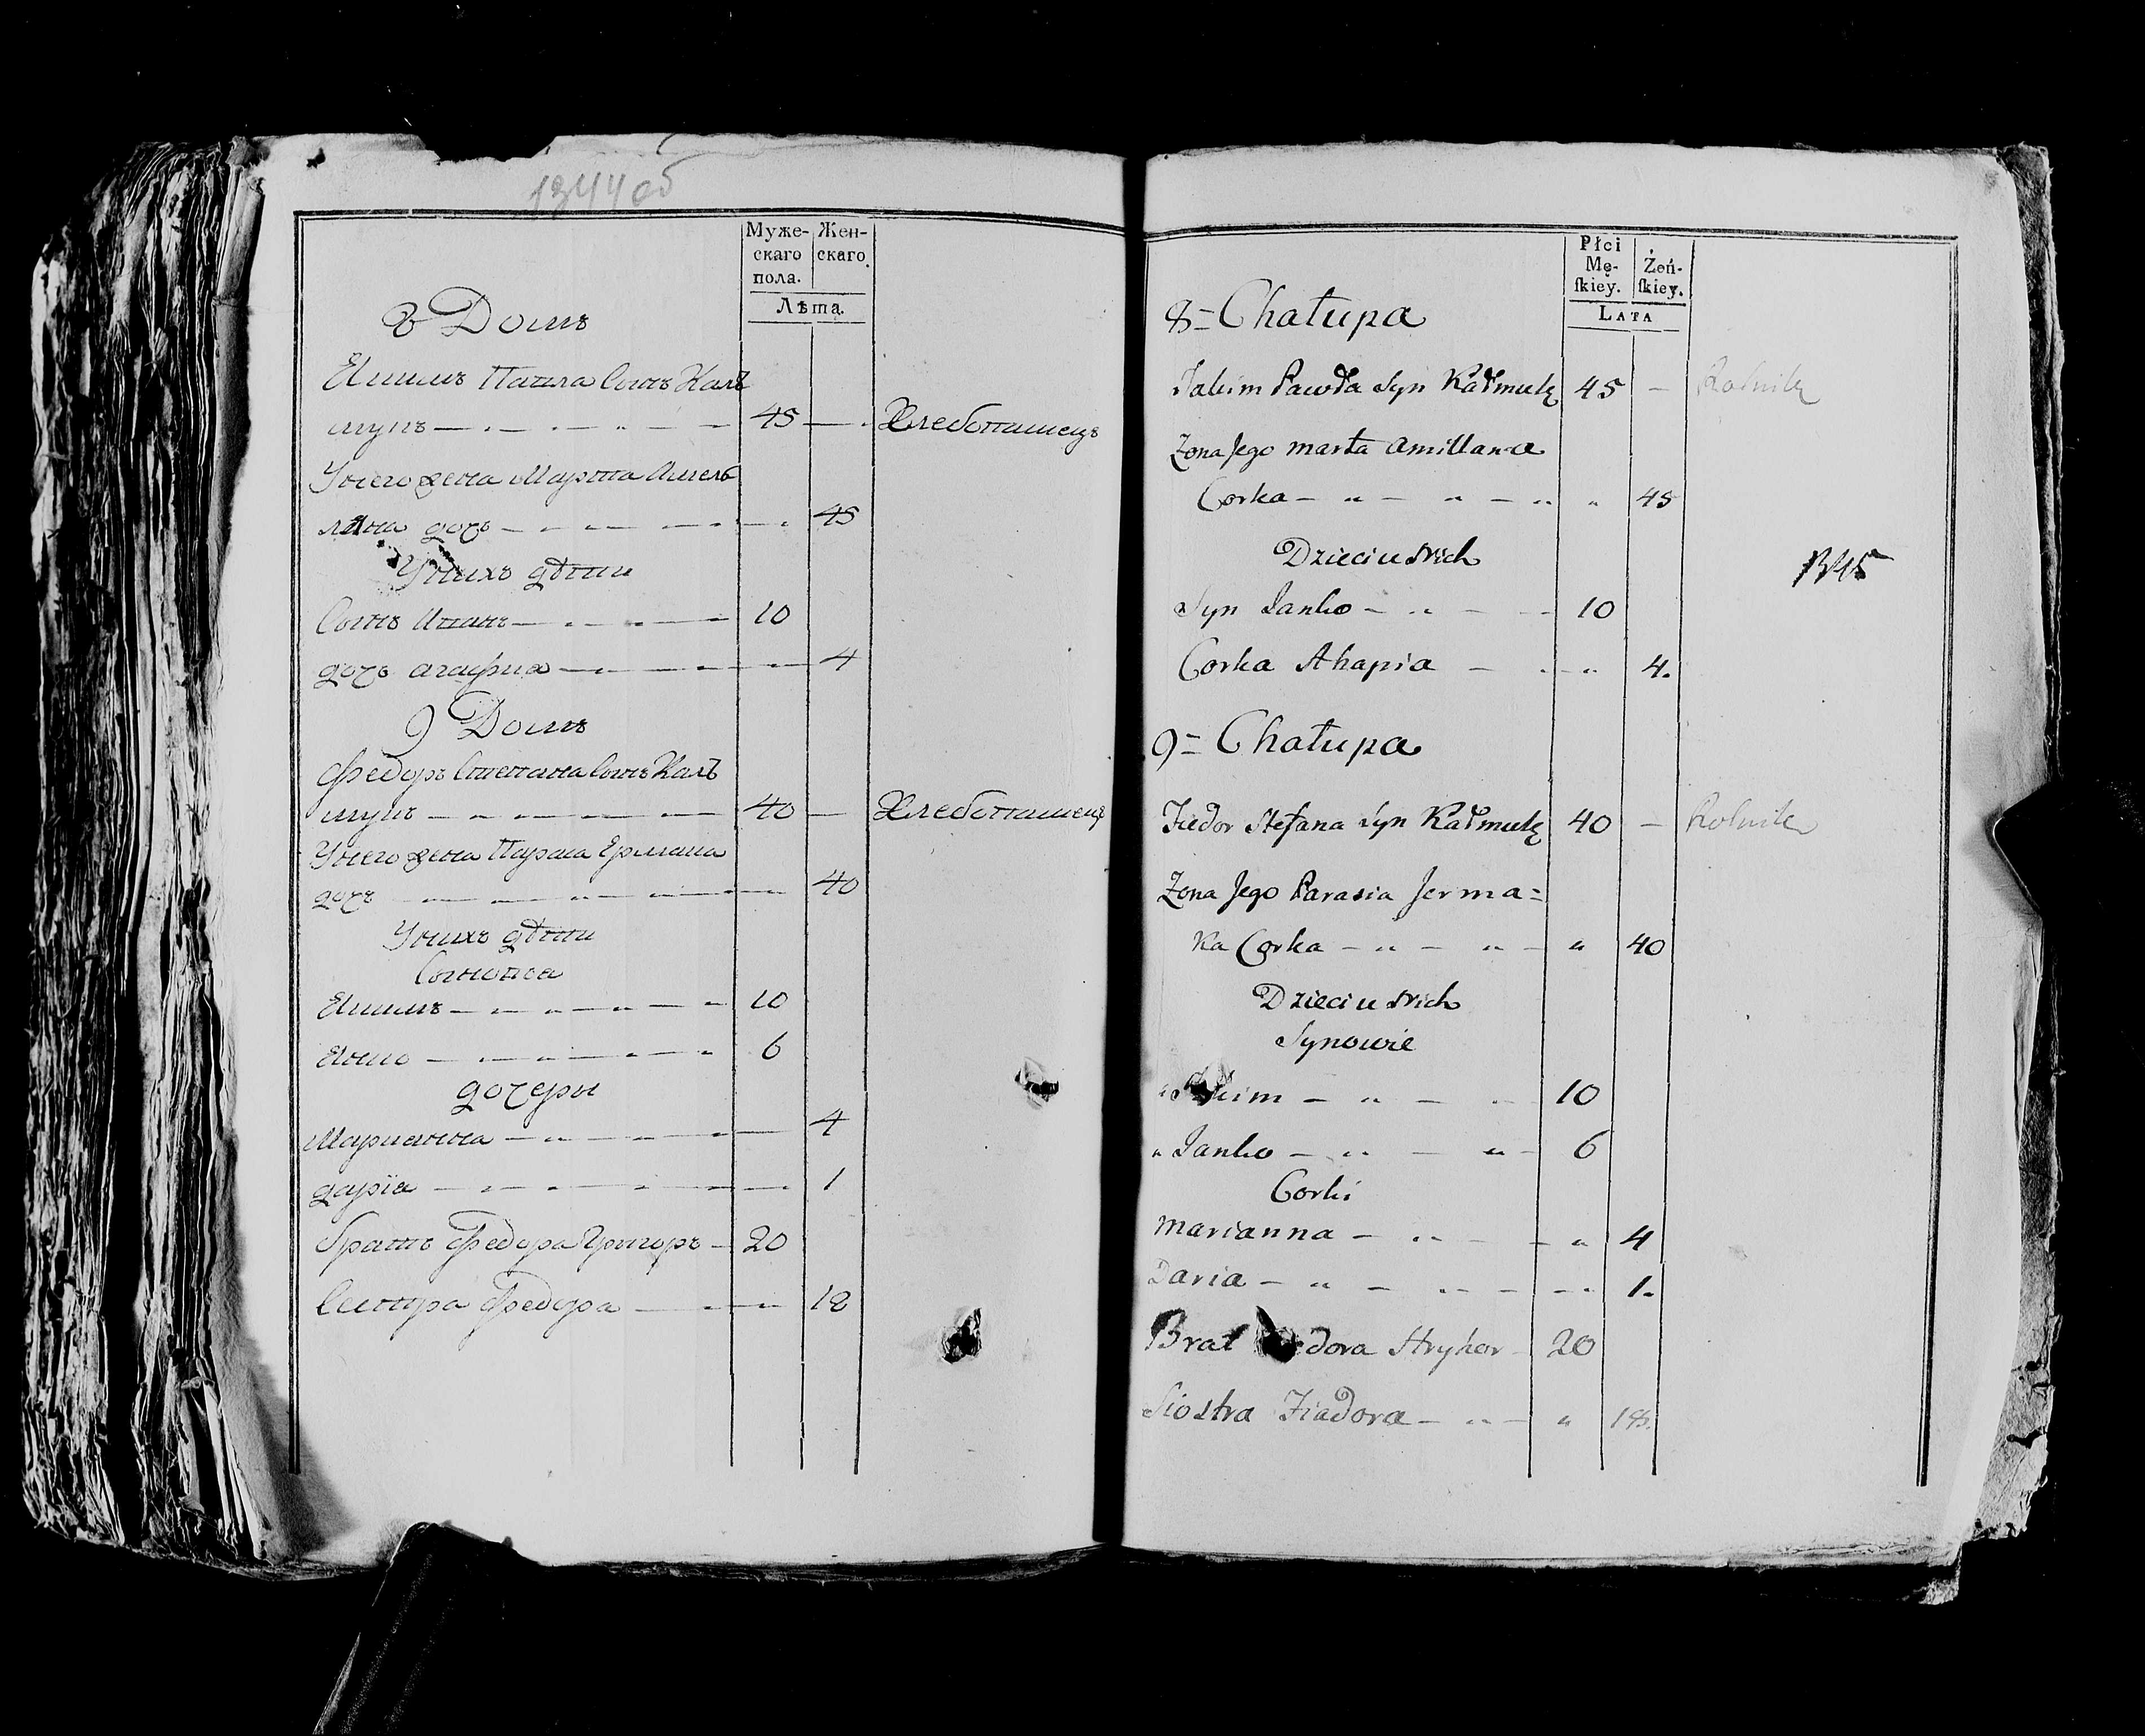 1344об
Муже-
скаго
пола.
Жен-
скаго
Лѣта.
8 Домъ
Екимъ Павла Сынъ Кал
мукъ 45 — Хлебопашецъ
Унего жена Марта Амель
яна дочь 45
Унихъ дѣти
Сынъ Иванъ 10
дочь агафия 4
9 Домъ
Федоръ Степана Сынъ Кал
мукъ 40 — Хлебопашецъ
Унего жена Параса Ермака
дочь 40
Унихъ дѣти
Сыновья
Екимъ 10
6
дочеры
Марианна 4
дария 1
братъ Федора Григоръ 20
Сестра Федора 18
Płci
Mę-
ſkiey.
Żeń-
ſkiey.
LATA
8= Chałupa
Jakim Pawła Syn Kałmuk 45 — Rolnik
Zona Jego marta amillana
Corka 45
Dzieci u Nich
Syn Janko 10
Corka Ahapia 4.
1345
9= Chałupa
Fiedor Stefana Syn Kałmuk 40 — Rolnik
Zona Jego Parasia Jerma=
ka Corka 40
Dzieci u Nich
Synowie
Jakim 10
Janko 6
Corki
marianna 4
Daria 1.
Brat Fiedora Hryhor 20
Siostra Fiadora 18.